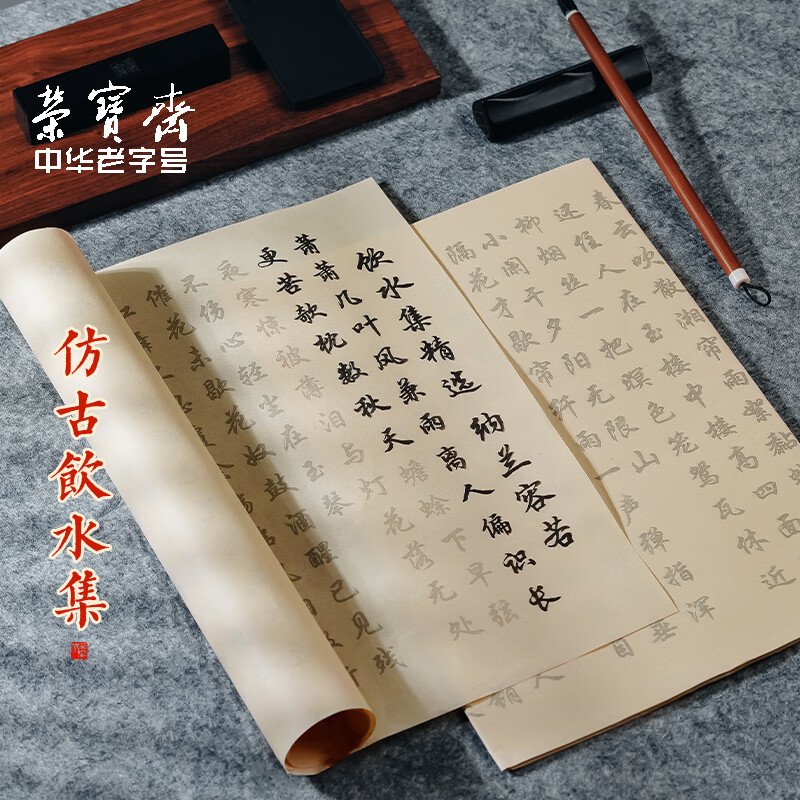 榮寶齋
中华老字号
仿古飲水集
饮水集精选 纳兰容若
萧萧几叶风兼雨离人偏识长
更苦欹枕数秋天蟾蜍下早弦
夜寒惊被薄泪与灯花落无处
不伤心轻尘在玉琴
催花未歇花奴鼓酒醒已见残
春云吹散湘帘雨絮黏
还住人在玉楼中楼高四面
柳烟丝一把暝色笼鸳瓦休近
小阑干夕阳无限山
隔花才歇帘纤雨一声弹指浑